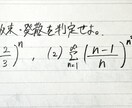 収束・発散を判定せよ。
2/3)^n , (2) ∑_{n=1}^∞ ((n-1)/n)^{n²}